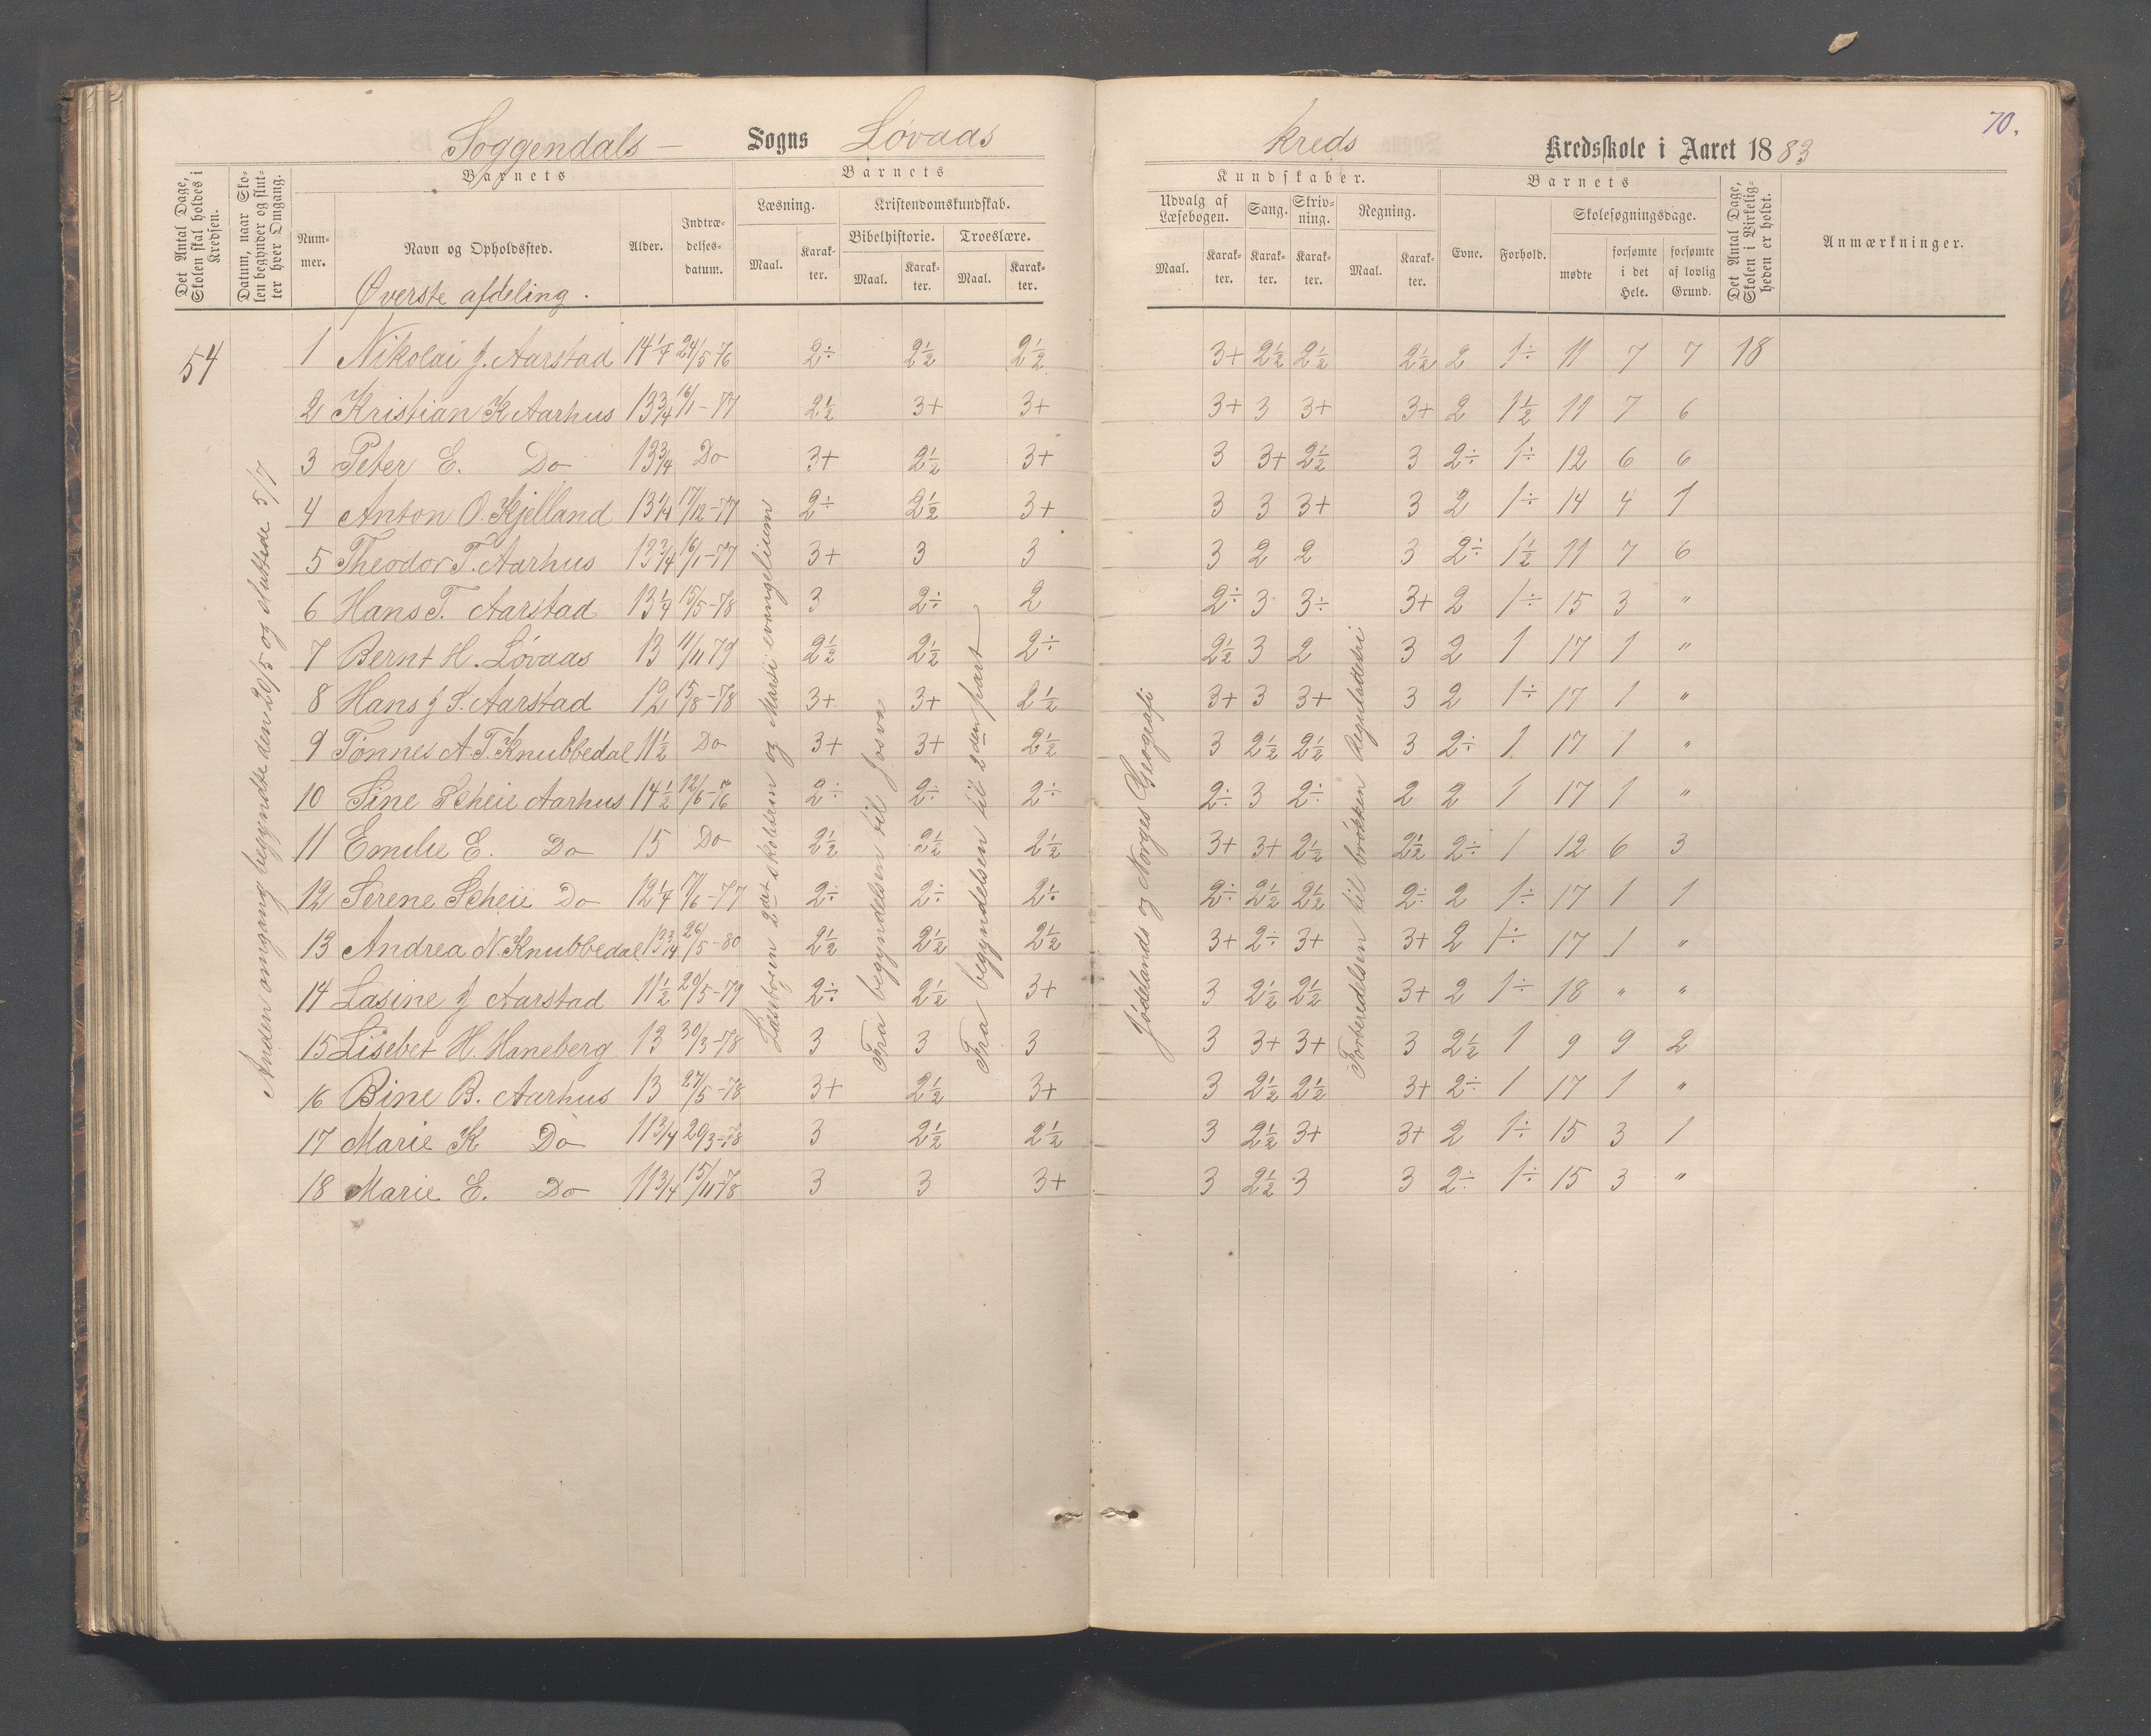 70.
Soggendals – Sogns Løvaas kreds Kredsskole i Aaret 1883
Det Antal Dage, Skolen skal holdes i Kredsen.
Datum, naar Skolen begynder og slutter hver Omgang.
Barnets
Nummer.
Navn og Opholdssted.
Alder.
Indtrædelsesdatum.
Barnets
Læsning.
Maal.
Karakter.
Kristendomskundskab.
Bibelhistorie.
Maal.
Karakter.
Troeslære.
Maal.
Karakter.
Kundskaber.
Udvalg af Læsebogen.
Maal.
Karakter.
Sang.
Karakter.
Skrivning.
Karakter.
Regning.
Maal.
Karakter.
Barnets
Evne.
Forhold.
Skolesøgningsdage.
mødte
forsømte i det Hele.
forsømte af lovlig Grund.
Det Antal Dage, Skolen i Virkeligheden er holdt.
Anmærkninger.
Øverste afdeling.
54
Anden omgang begyndte den 20/5 og sluttede 5/7
Læsebogen 2det skoletrin og Marsi evangelium
Fra begyndelsen til Josva
Fra begyndelsen til 2den part
Jødelands og Norges Geografi
Forberedelsen til brøkken Reguladetri
1 Nikolai J. Aarstad 14 1/4 24/5-76 2÷ 2½ 2½ 3+ 2½ 2½ 2½ 2 1÷ 11 7 7 18
2 Kristian K Aarhus 13 3/4 16/1-77 2½ 3+ 3+ 3+ 3 3+ 3+ 2 1½ 11 7 6
3 Peter E. Do 13 3/4 Do 3+ 2½ 3+ 3 3+ 2½ 3 2÷ 1÷ 12 6 6
4 Anton O. Kjelland 13 1/4 17/12-77 2÷ 2½ 3+ 3 3 3+ 3 2 1÷ 14 4 1
5 Theodor T. Aarhus 13 3/4 16/1-77 3+ 3 3 3 2 2 3 2÷ 1½ 11 7 6
6 Hans T. Aarstad 13 1/4 15/5-78 3 2÷ 2 2÷ 3 3÷ 3+ 2 1÷ 15 3 "
7 Bernt H. Løvaas 13 11/11 79 2½ 2½ 2÷ 2½ 3 2 3 2 1 17 1 "
8 Hans J S. Aarstad 12 15/8-78 3+ 3+ 2½ 3+ 3 3+ 3 2 1÷ 17 1 "
9 Tønnes A. T. Knubbedal 11½ Do 3+ 3+ 2½ 3 2½ 2½ 3 2÷ 1 17 1 "
10 Sine Scheie Aarhus 14½ 12/6-76 2÷ 2÷ 2÷ 2÷ 3 2÷ 2 2 1 17 1 "
11 Emilie E. Do 15 Do 2½ 2½ 2½ 3+ 3+ 2½ 2½ 2÷ 1 12 6 3
12 Serene Scheie Do 12 1/4 11/6-77 2÷ 2÷ 2÷ 2÷ 2½ 2½ 2÷ 2 1÷ 17 1 1
13 Andrea N. Knubbedal 13 3/4 26/5-80 2½ 2½ 2½ 3+ 2÷ 3+ 3+ 2 1÷ 17 1 "
14 Lasine J Aarstad 11½ 20/5-79 2÷ 2½ 3+ 3 2½ 2½ 3+ 2 1÷ 18 " "
15 Lisebet H. Haneberg 13 30/3-78 3 3 3 3 3+ 3+ 3 2½ 1 9 9 2
16 Bine B. Aarhus 13 27/5-78 3+ 2½ 3+ 3 2½ 2½ 3+ 2÷ 1 17 1 "
17 Marie K Do 11 3/4 20/3-78 3 2½ 2½ 3 2½ 3+ 3+ 2 1÷ 15 3 1
18 Marie E. Do 11 3/4 15/11-78 3 3 3+ 3 2½ 3 3 2÷ 1÷ 15 3 "